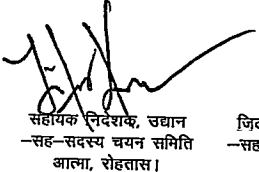 सहायक निदेशक, उद्यान
–सह–सदस्य चयन समिति
आत्मा, रोहतास।
–सह